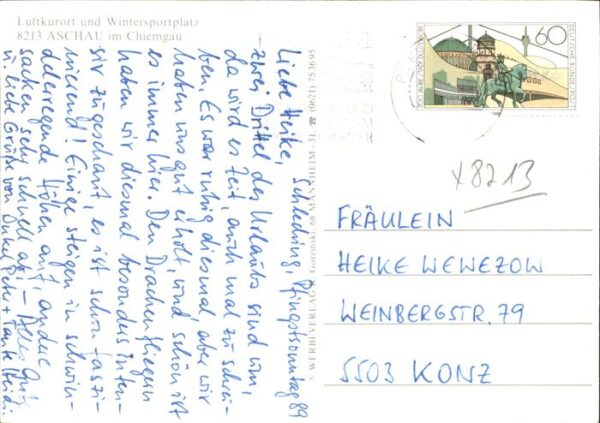 Luftkurort und Wintersportplatz
8213 ASCHAU im Chiemgau
Schleching, Pfingstsonntag 89
Liebe Heike,
zwei Drittel des Urlaubs sind um,
da wird es Zeit, auch mal zu schrei-
ben. Es war ruhig diesmal, aber wir
haben uns gut erholt, und schön ist
es immer hier. Den Drachenfliegern
haben wir diesmal besonders inten-
siv zugeschaut, es ist schon faszi-
nierend! Einige steigen in schwin-
delerregende Höhen auf, andere
sacken sehr schnell ab. – Alles Gute
u. liebe Grüße von Onkel Peter + Tante Heidi.
© WERBEVERLAG Gorzinski, 68 MANNHEIM 31, ☎ (0621)
60
DEUTSCHE BUNDESPOST
x8213
FRÄULEIN
HEIKE WEWEZOW
WEINBERGSTR. 79
5503 KONZ